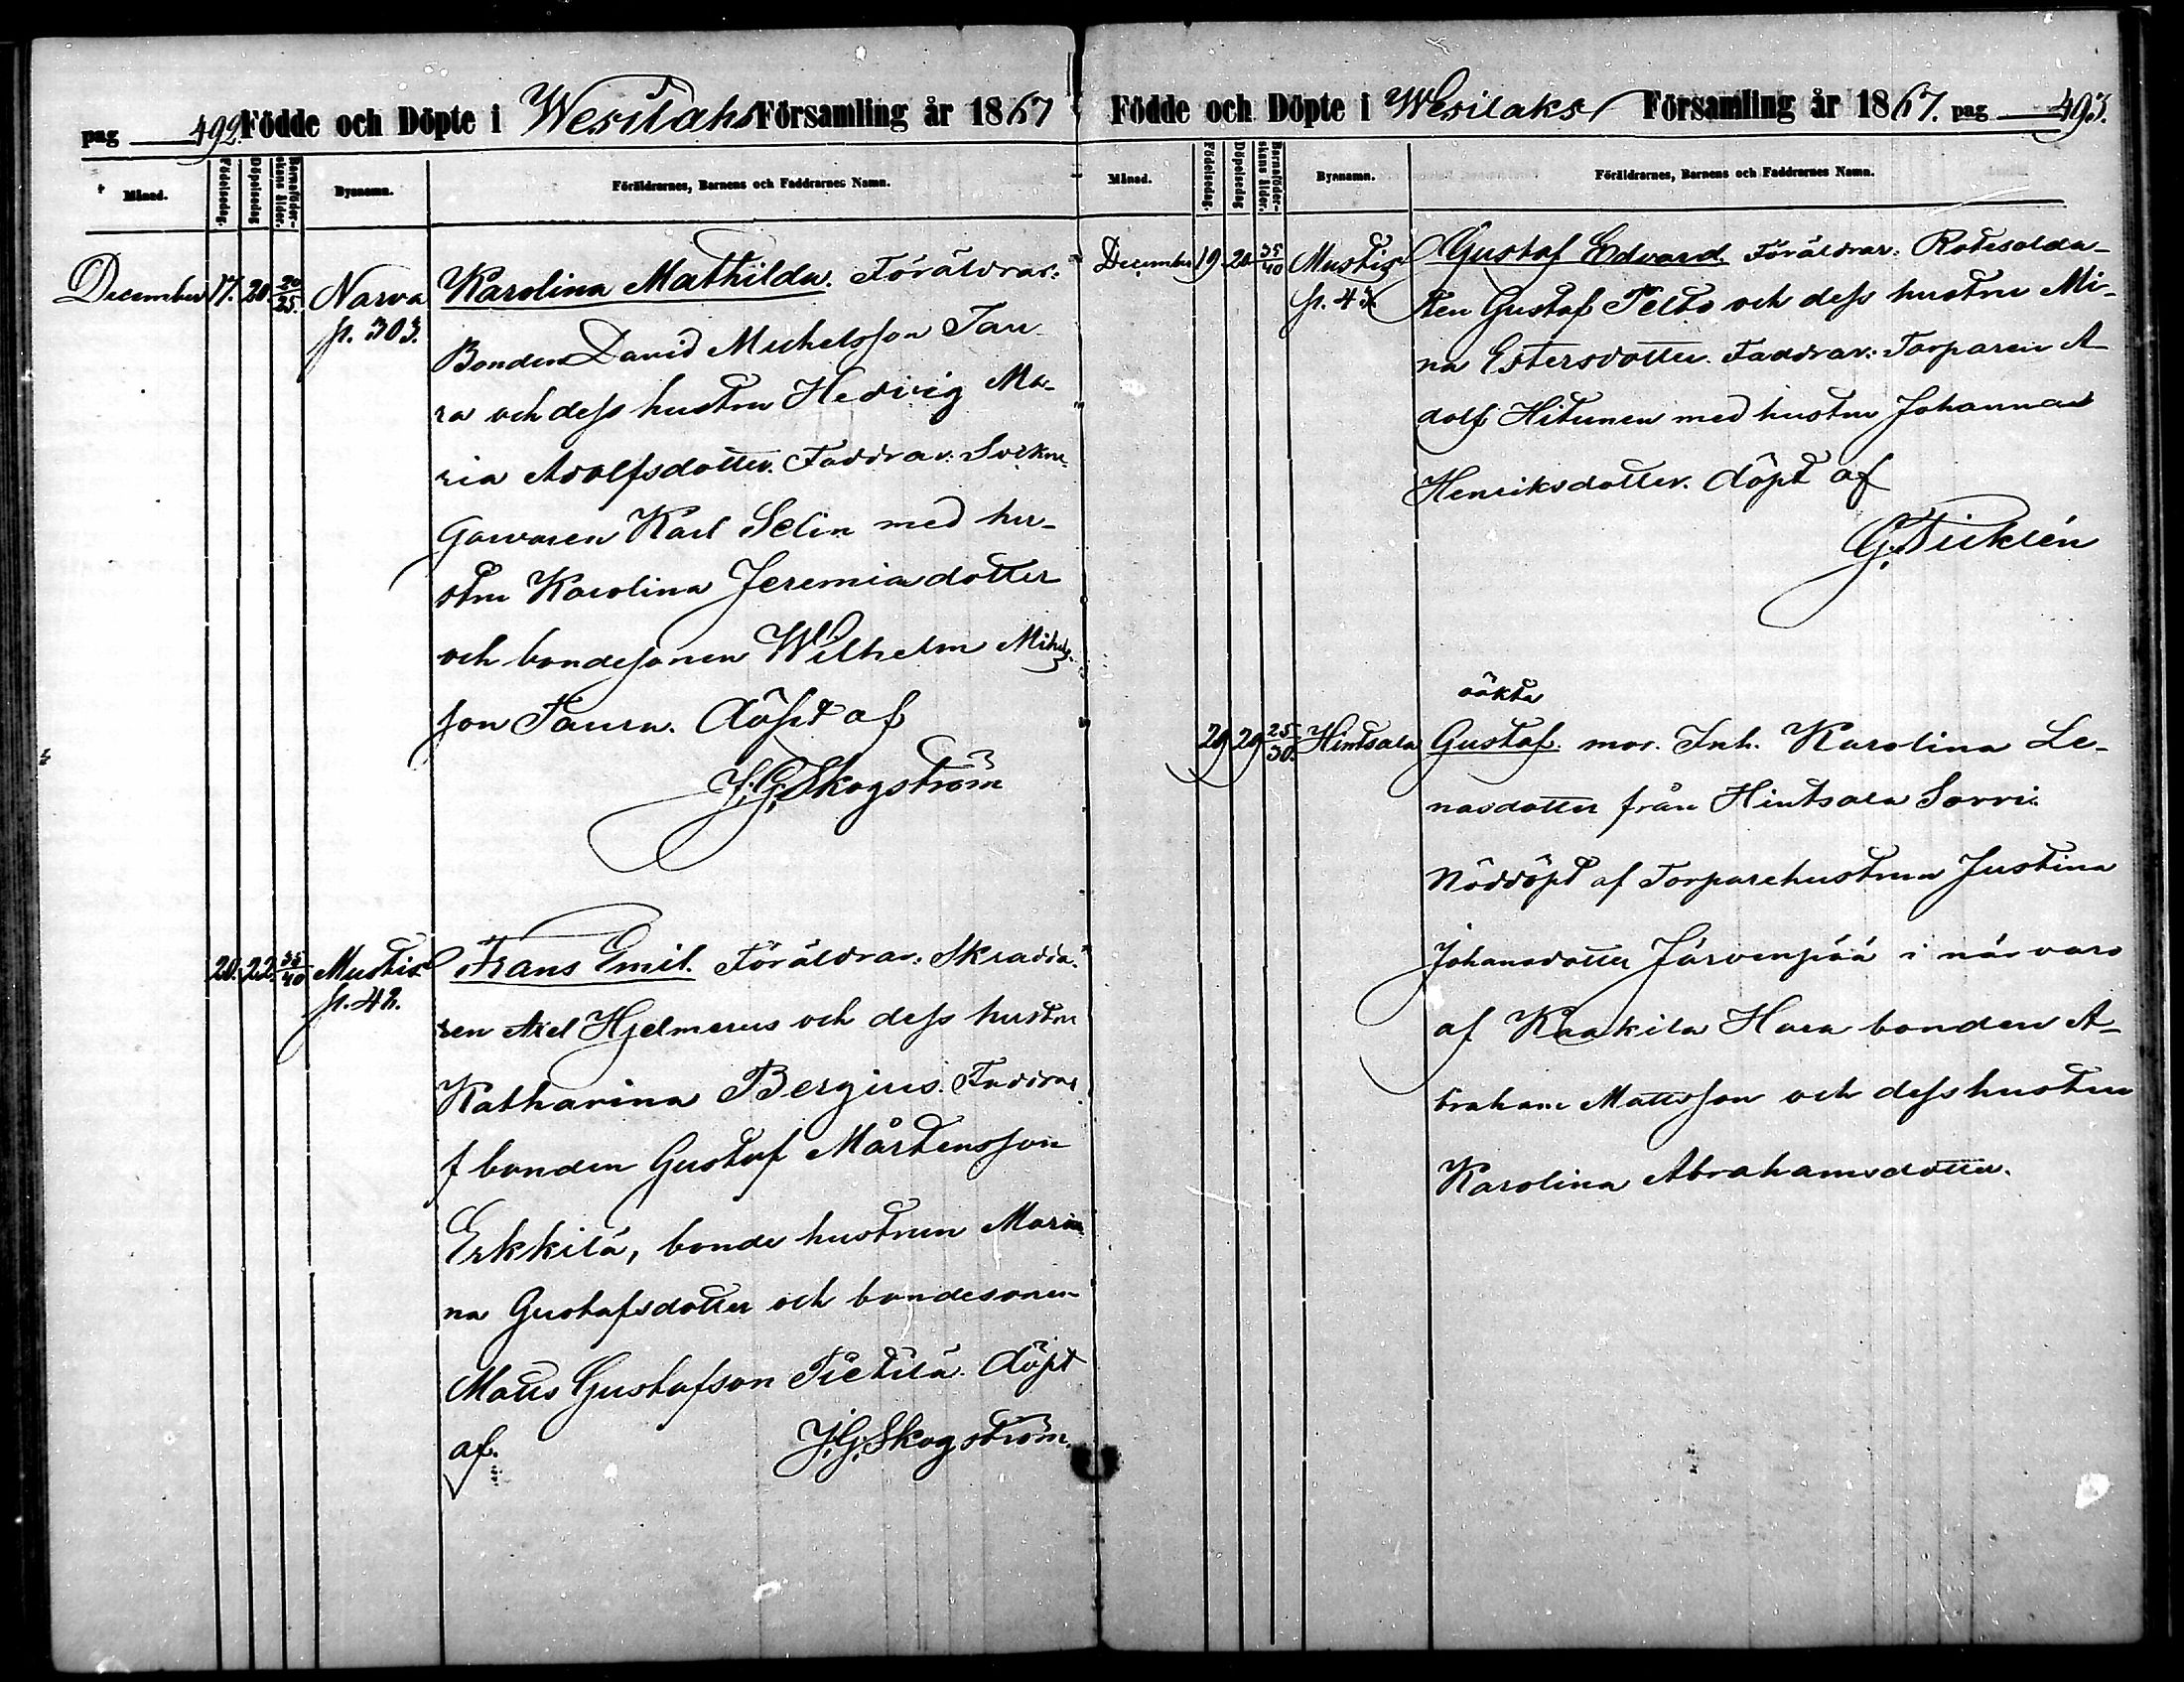 pag 492. Födde och Döpte i Wesilahs Församling år 1867
Månad. Födelsedag. Döpelsedag Barnaföder-skans ålder. Bynamn. Föräldrarnes, Barnens och Faddrarnes Namn.
December 17. 20. 20/25. Narva Karolina Mathilda. Föräldrar:
p. 303. Bonden David Michelsson Tau
ra och dess hustru Hedvig Ma-
ria Adolfsdotter. Faddrar: Sockne-
garvaren Karl Selin med hu-
stru Karolina Jeremiadotter
och bondesonen Wilhelm Mihels-
son Taura. döpt af
J. G. Skogström
20. 22. 35/40 Mustis Frans Emil. Föräldrar: Skradda-
p. 42. ren Axel Hjelmerus och dess hustru
Katharina Bergius. Faddrar
f bonden Gustaf Mårtensson
Erkkilä, bonde hustrun Maria
na Gustafsdotter och bondesonen
Matts Gustafson Pietilä. döpt
af. J. G. Skogström.
Födde och Döpte i Wesilaks Församling år 1867. pag 493.
Månad. Födelsedag. Döpelsedag Barnaföder-skans ålder. Bynamn. Föräldrarnes, Barnens och Faddrarnes Namn.
December 19. 20. 35/40 Mustis Gustaf Edvard. Föräldrar: Rotesolda-
p. 43 ten Gustaf Pelto och dess hustru Mi-
na Estersdotter. Faddrar: Torparen A-
dolf Hitunen med hustru Johanna
Henriksdotter. döpt af
G. Dicklén
oäkta
29 29 25/30. Hintsala Gustaf. mor. Inh. Karolina Le-
nasdotter från Hintsala Sorri.
Nöddöpt af Torparehustrun Justina
Johansdotter Järvenpää i när varo
af Kaakila Hara bonden A-
braham Mattsson och dess hustru
Karolina Abrahamsdotter.